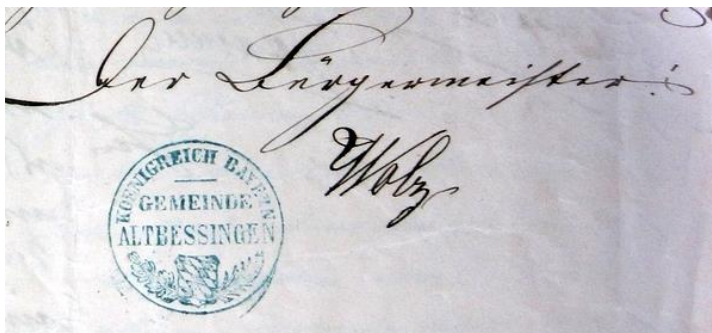 Der Bürgermeister:
Wolz
KOENIGREICH BAYERN
GEMEINDE
ALTBESSINGEN